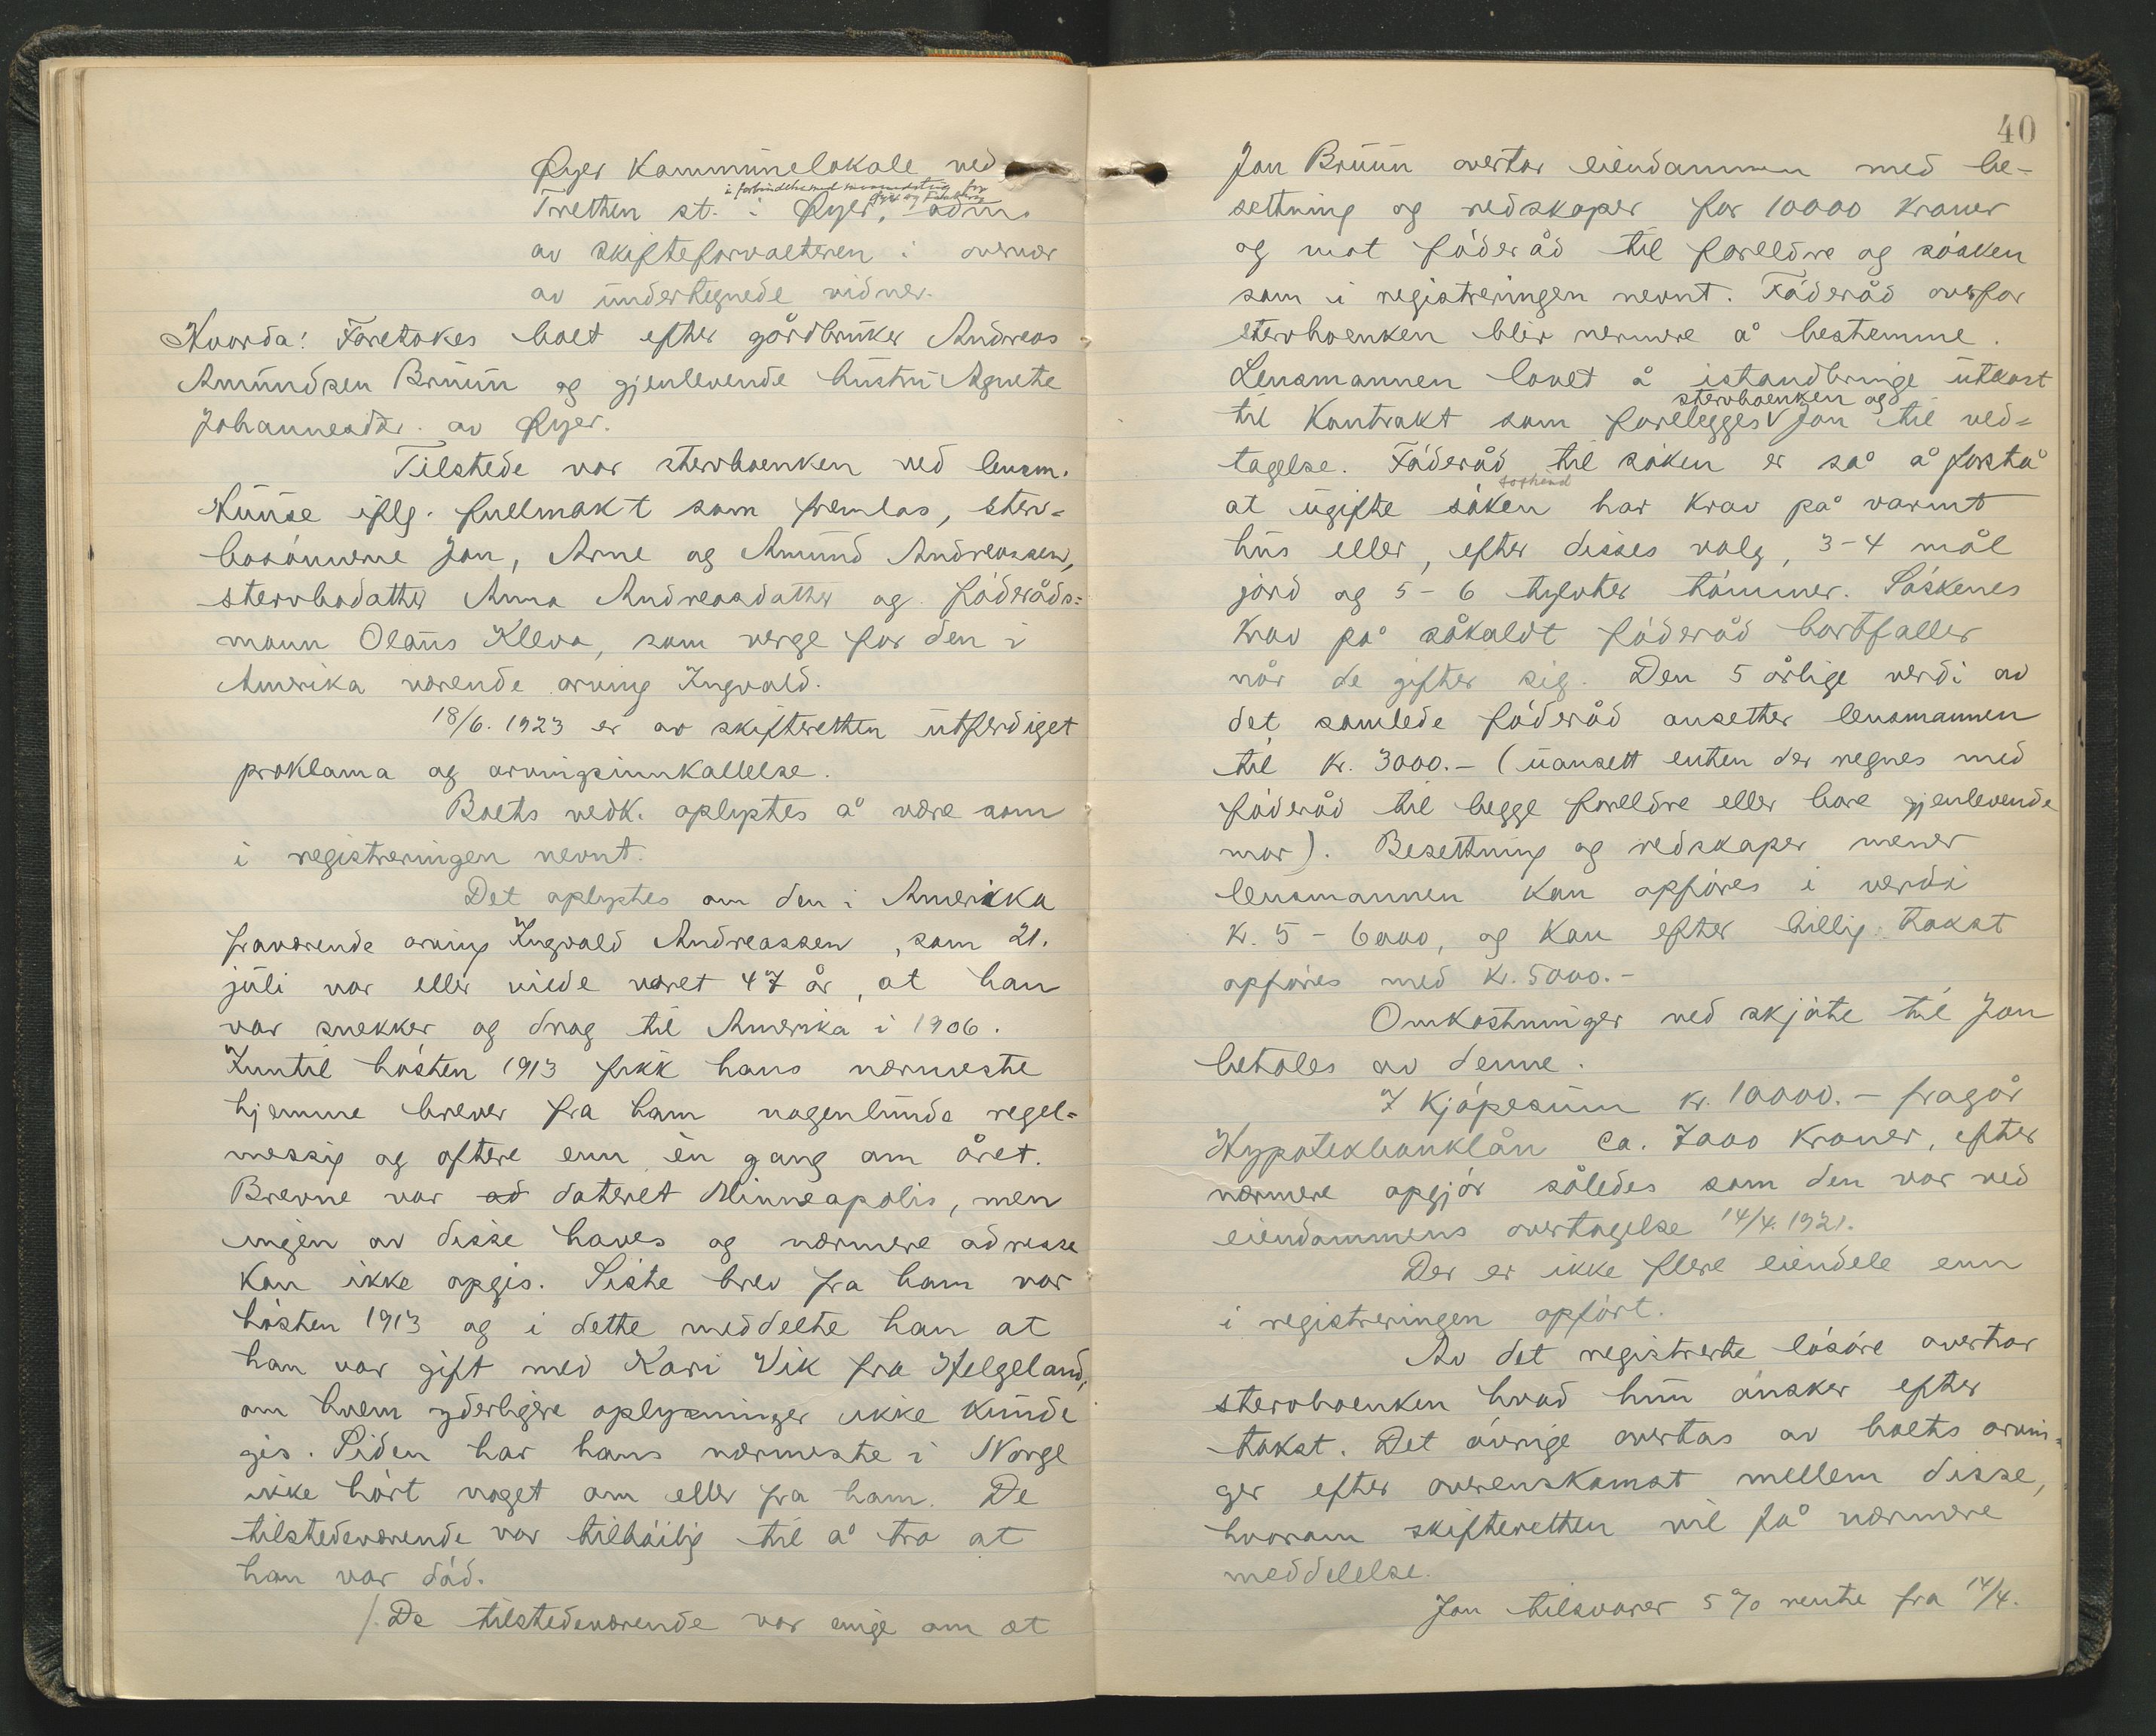 Øyer Kommunelokale ved
i forbindelse med
Tretten st. i Øyer, adm.
av skifteforvalteren i overvær
av undertegnede vidner.
Hvorda: Foretokes boet efter gårdbruker Andreas
Amundsen Bruun og gjenlevende hustru Agnete
Johannesdtr. av Øyer.
Tilstede var stervboenken ved lensm.
Huuse iflg. fullmakt som fremlas, sterv=
bosönnerne Jon, Arne og Amund Andreassen,
stervbodatter Anna Andreasdatter og föderåds=
mann Olaus Kleva, som verge for den i
Amerika værende arving Ingvald.
18/6. 1923 er av skifteretten utferdiget
proklama og arvingsinnkallelse.
Boets vedk. oplystes å være som
i registreringen nevnt.
Det oplystes om den i Amerika
fraværende arving Ingvald Andreassen, som 21.
juli var eller vilde været 47 år, at han
var snekker og drog til Amerika i 1906.
Inntil hösten 1913 fikk hans nærmeste
hjemme brever fra ham nogenlunde regel=
messig og oftere enn én gang om året.
Brevne var ad dateret Minneapolis, men
ingen av disse haves og nærmere adresse
kan ikke opgis. Siste brev fra ham var
hösten 1913 og i dette meddelte han at
han var gift med Kari Vik fra Helgeland,
om hvem yderligere oplysninger ikke kunde
gis. Siden har hans nærmeste i Norge
ikke hört noget om eller fra ham. De
tilstedeværende var tilböilig til å tro at
han var död.
/. De tilstedeværende var enige om at
40
Jon Bruun overtar eiendommen med be-
settning og redskaper for 10000 kroner
og mot föderåd til forelldre og sösken
som i registreringen nevnt. Föderåd overfor
stervboenken blir nærmere å bestemme.
Lensmannen lovet å istandbringe utkast
stervboenken og
til kontrakt som forelegges V Jon til ved=
tagelse. Föderåd til sösken er så å forstå
at ugifte söken har krav på varmt
hus eller, efter disses valg, 3-4 mål
jord og 5-6 tylvter tömmer. Söskenes
krav på såkaldt föderåd bortfaller
når de gifter sig. Den 5 årlige verdi av
det samlede föderåd ansetter lensmannen
til kr. 3000.- (uansett enten der regnes med
föderåd til begge forelldre eller bare gjenlevende
mor). Besettning og redskaper mener
lensmannen kan opföres i verdi
kr. 5-6000, og kan efter billig takst
opföres med kr. 5000.-
Omkostninger ved skjöte til Jon
betales av denne.
I kjöpesum kr. 10000.- fragår
Hypotekbanklån ca. 7000 kroner, efter
nærmere opgjör således som den var ved
eiendommens overtagelse 14/4. 1921.
Der er ikke flere eiendele enn
i registreringen opfört.
Av det registrerte lösöre overtar
stervboenken hvad hun önsker efter
takst. Det övrige overtas av boets arvin=
ger efter overenskomst mellem disse,
hvorom skifteretten vil få nærmere
meddelelse.
Jon tilsvarer 5 % rente fra 14/4.